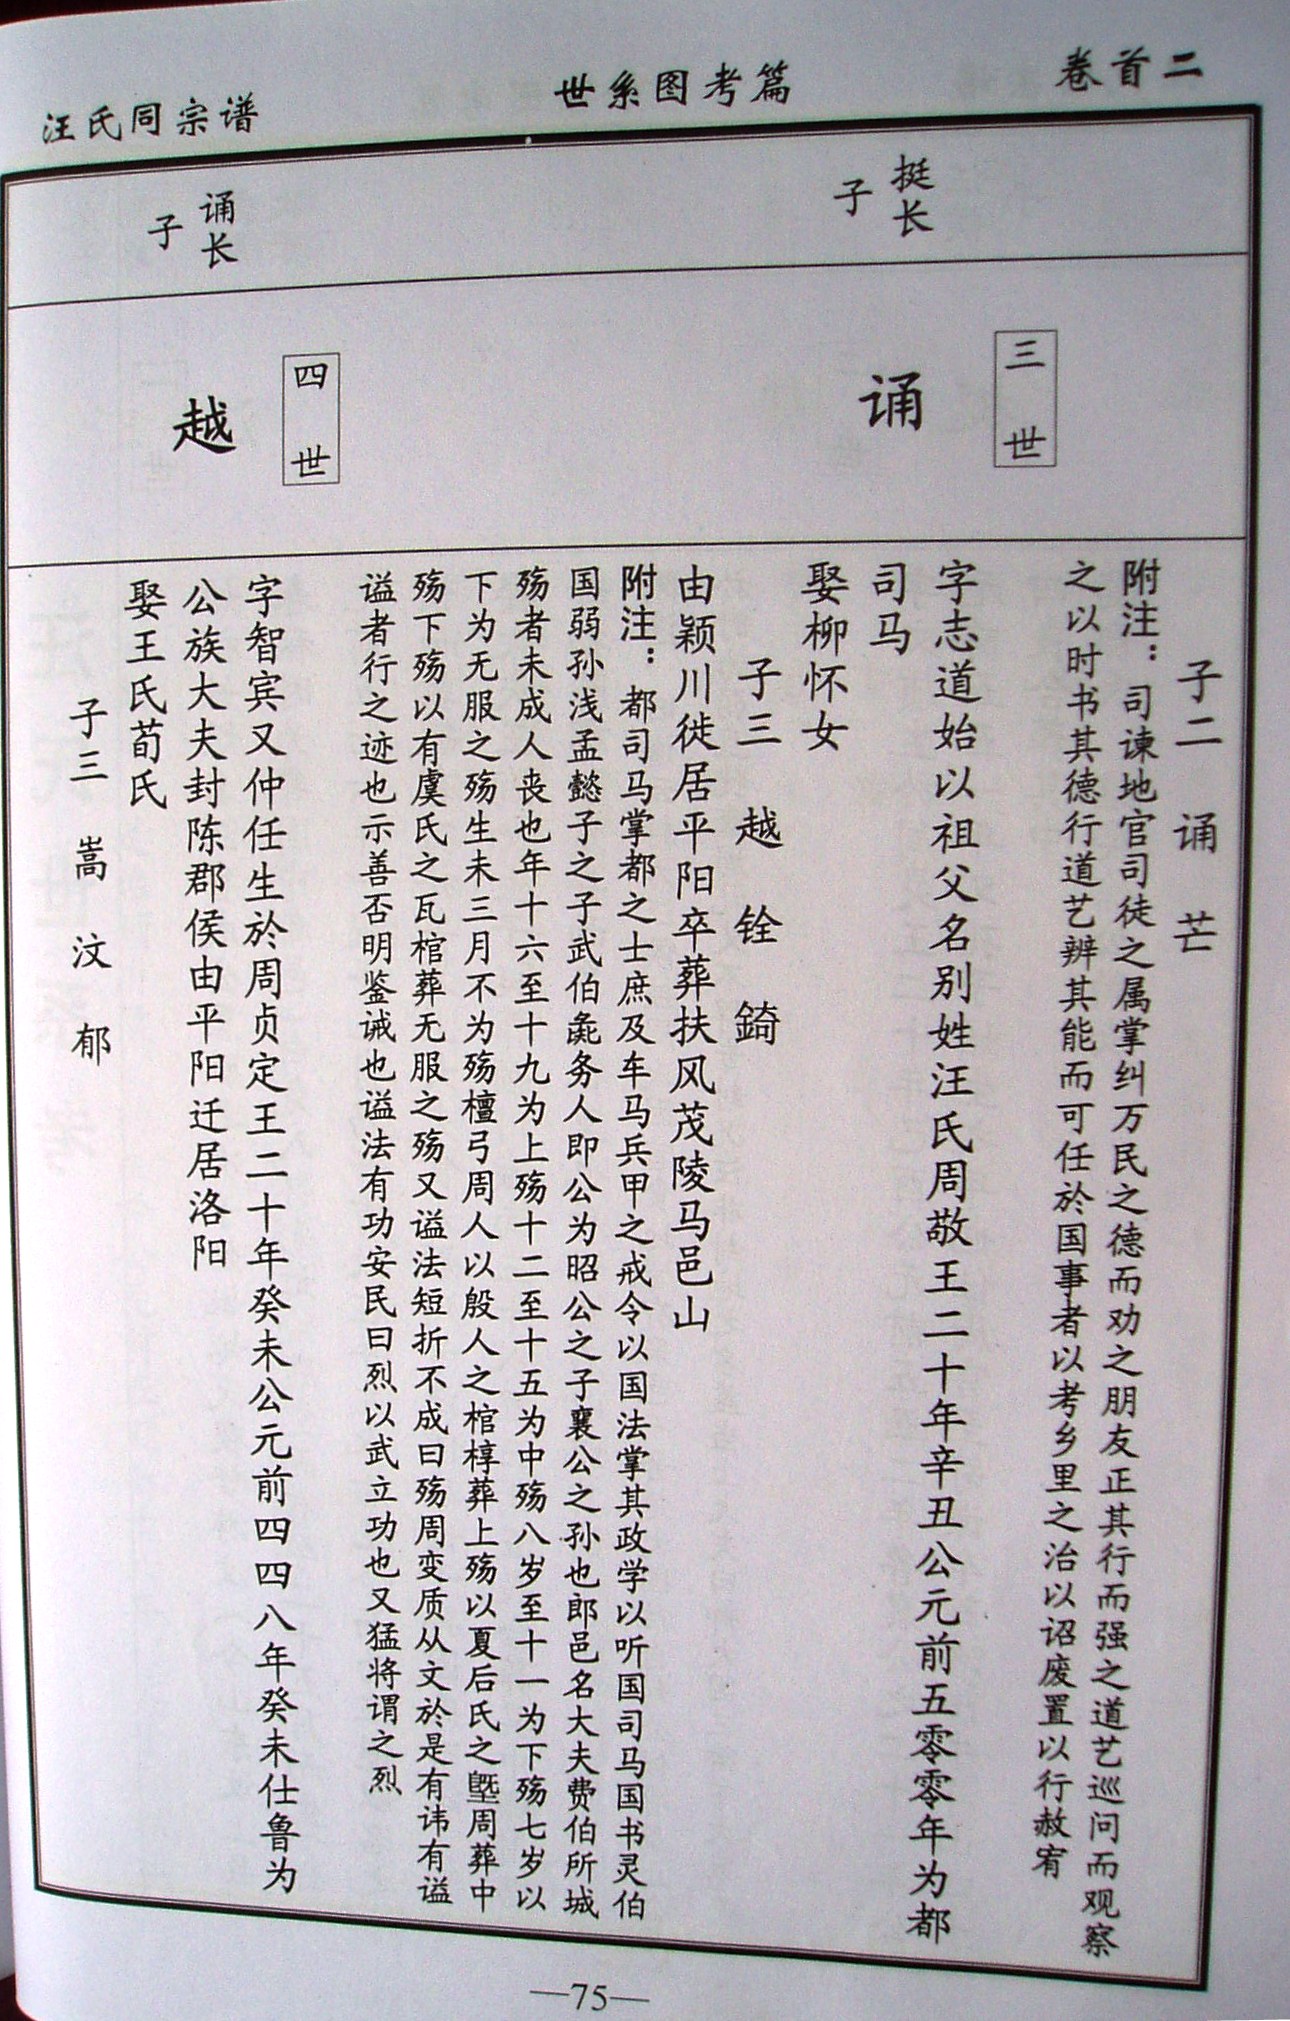 卷首二
世系图考篇
汪氏同宗谱
子二 诵 芒
附注：司谏地官司徒之属掌纠万民之德而劝之朋友正其行而强之道艺巡问而观察
之以时书其德行道艺辨其能而可任於国事者以考乡里之治以诏废置以行赦宥
三世
挺长
子
诵
字志道始以祖父名别姓汪氏周敬王二十年辛丑公元前五零零年为都
司马
娶柳怀女
子三 越 铨 錡
由颖川徙居平阳卒葬扶风茂陵马邑山
附注：都司马掌都之士庶及车马兵甲之戒令以国法掌其政学以听国司马国书灵伯
国弱孙浅孟懿子之子武伯彘务人即公为昭公之子襄公之孙也郎邑名大夫费伯所城
殇者未成人丧也年十六至十九为上殇十二至十五为中殇八岁至十一为下殇七岁以
下为无服之殇生未三月不为殇檀弓周人以殷人之棺椁葬上殇以夏后氏之塈周葬中
殇下殇以有虞氏之瓦棺葬无服之殇又谥法短折不成曰殇周变质从文於是有讳有谥
谥者行之迹也示善否明鉴诫也谥法有功安民曰烈以武立功也又猛将谓之烈
四世
诵长
子
越
字智宾又仲任生於周贞定王二十年癸未公元前四四八年癸未仕鲁为
公族大夫封陈郡侯由平阳迁居洛阳
娶王氏荀氏
子三 嵩 汶 郁
—75—